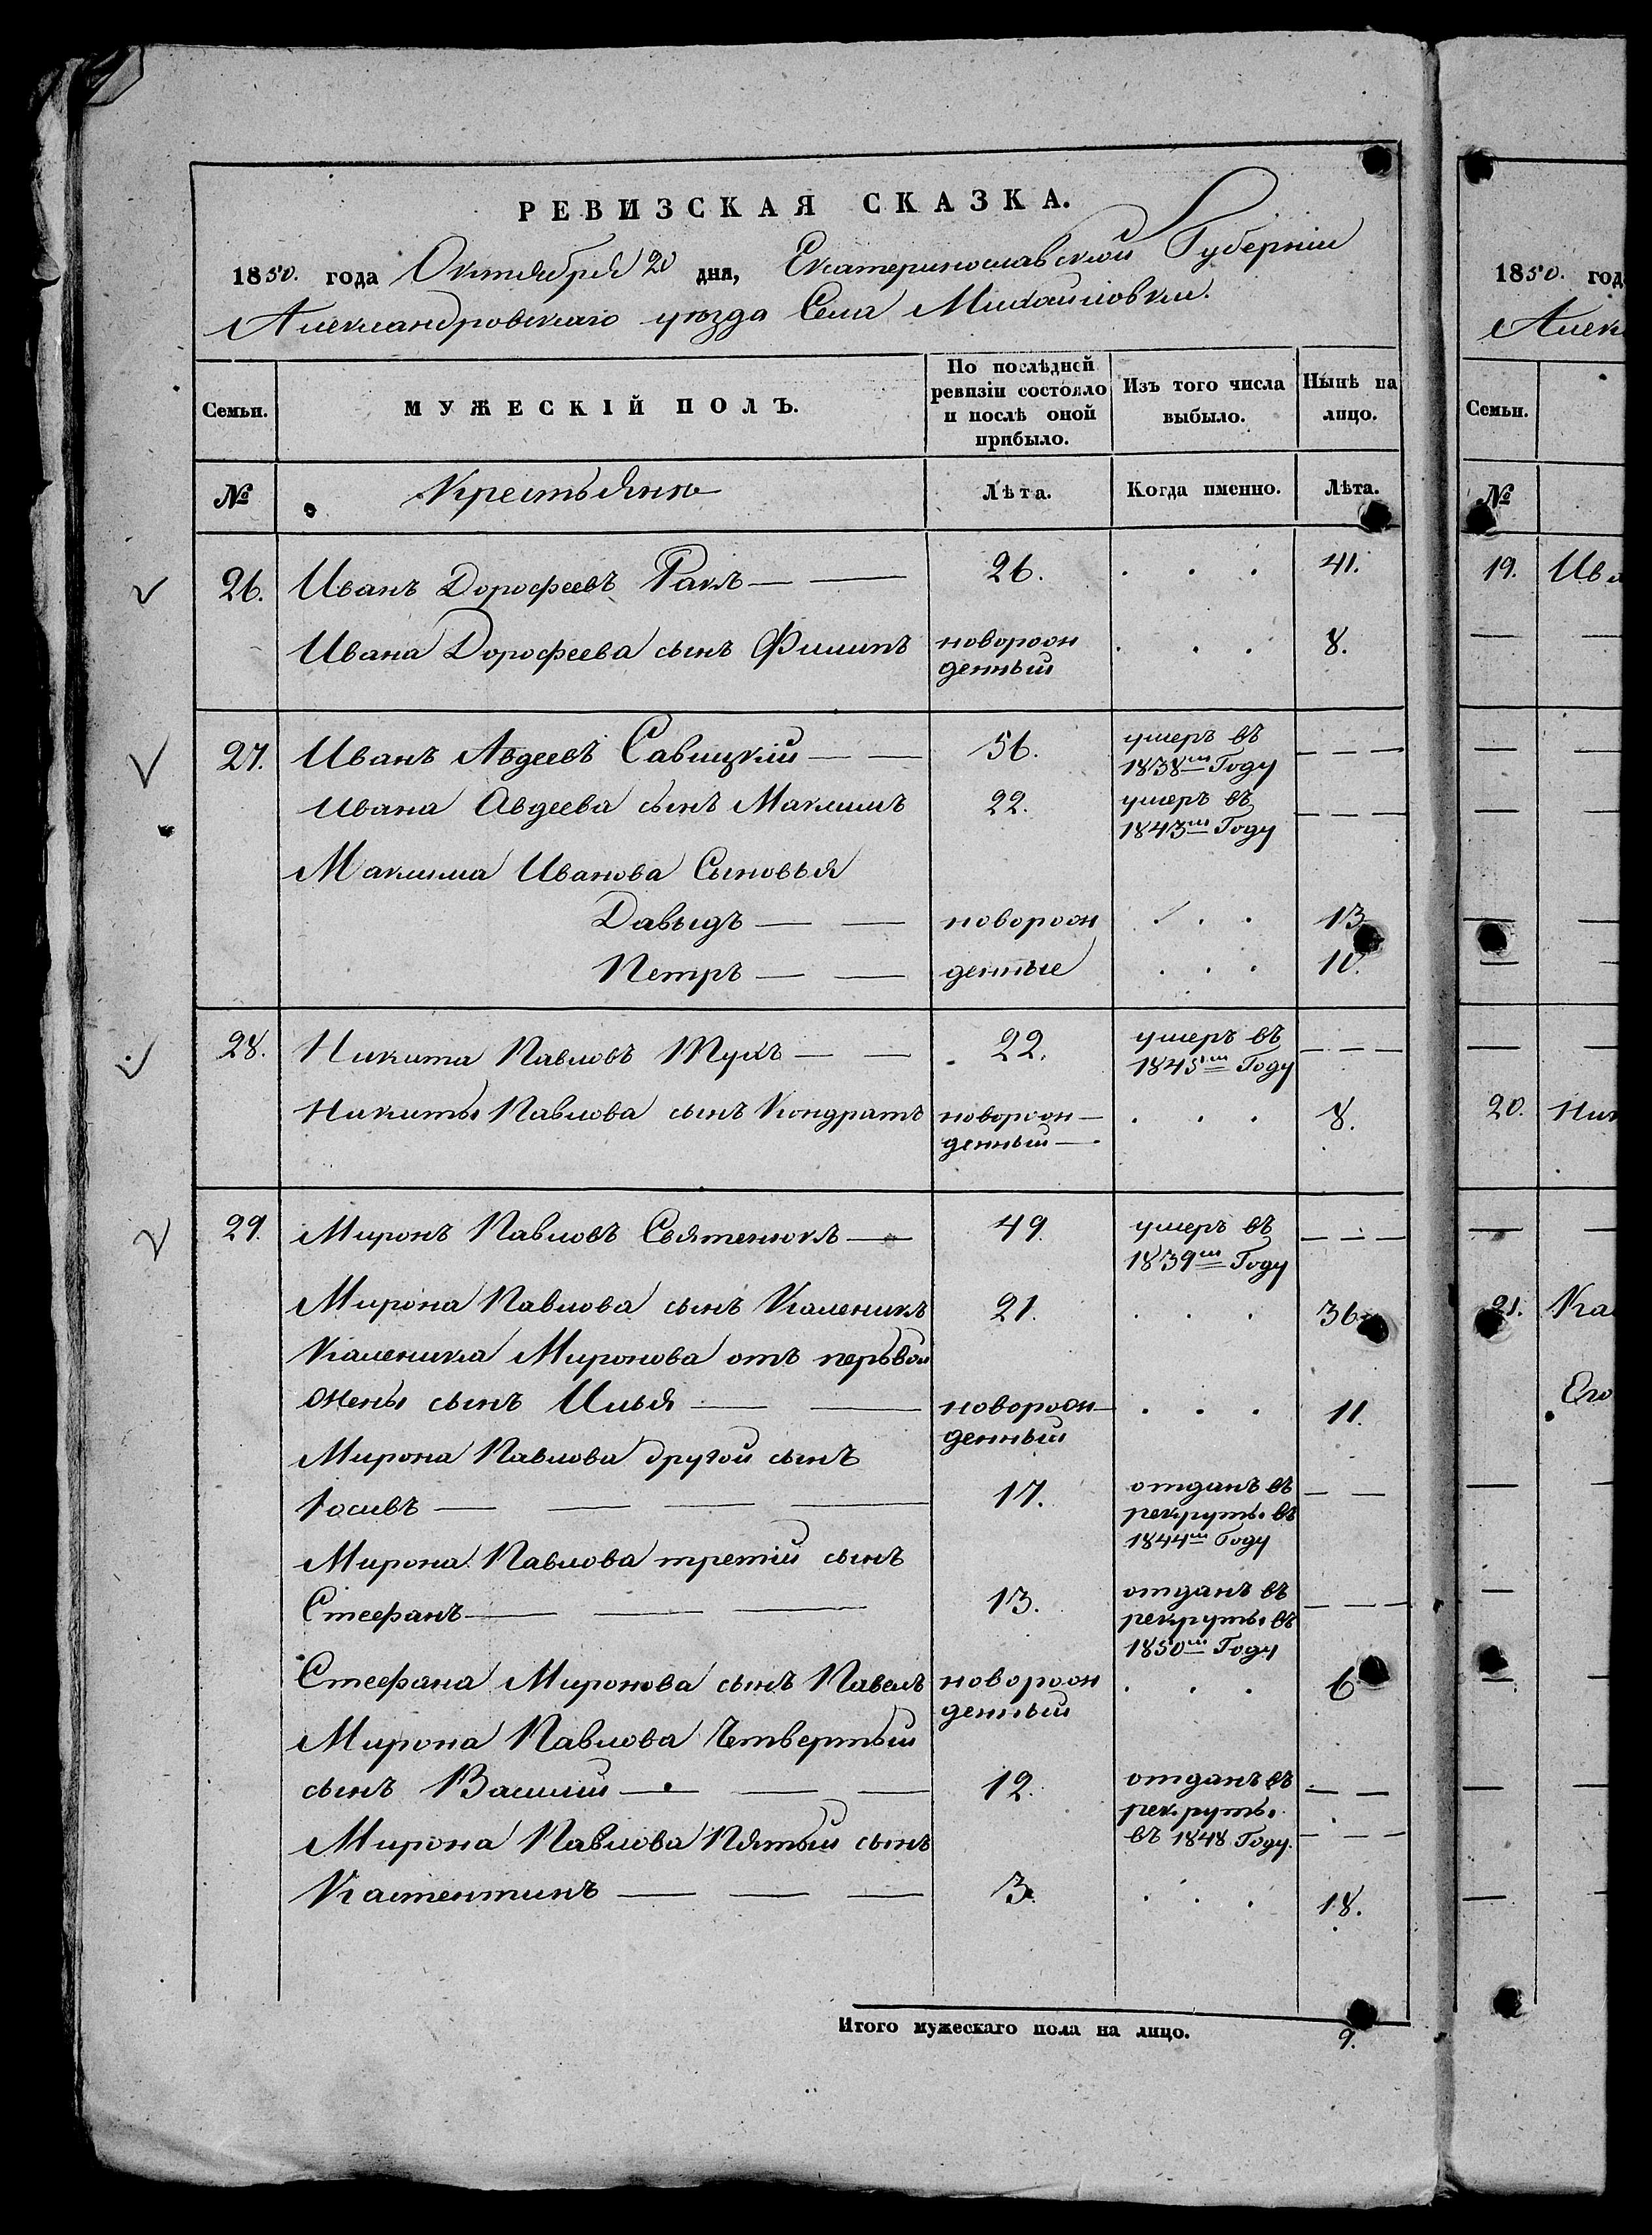 РЕВИЗСКАЯ СКАЗКА.
1850. года Октября 20 дня, Екатеринославской Губернiи
Александровскаго уѣзда Села Михайловки.
Семьи.
МУЖЕСКІЙ ПОЛЪ.
По послѣдней ревизіи состояло и послѣ оной прибыло.
Изъ того числа выбыло.
Нынѣ на лицо.
№ Крестьяне Лѣта. Когда именно. Лѣта.
26. Иванъ Дорофеевъ Ракъ — — 26. . . . 41.
Ивана Дорофеева сынъ Филипъ новорожденный . . . 8.
27. Иванъ Авдеевъ Савицкій — — 56. умеръ въ 1838м Году — — —
Ивана Авдеева сынъ Максимъ 22. умеръ въ 1843м Году — — —
Максима Иванова Сыновья
Давыдъ — — новорож . . . 13
Петръ — — денные . . . 10.
28. Никита Павловъ Тухъ — — 22. умеръ въ 1845м Году — — —
Никиты Павлова сынъ Кондратъ новорож— денный — . . . 8.
29. Миронъ Павловъ Святенюкъ — 49. умеръ въ 1839м Году — — —
Мирона Павлова сынъ Каленикъ 21. . . . 36
Каленика Миронова отъ первой
жены сынъ Илья — — новорож— денный . . . 11.
Мирона Павлова другой сынъ
Iосивъ — — — — 17. отданъ въ рекруты въ 1844м Году — —
Мирона Павлова третій сынъ
Стефанъ — — — 13. отданъ въ рекруты въ 1850м Году — — —
Стефана Миронова сынъ Павелъ новорожденный . . . 6
Мирона Павлова Четвертый
сынъ Василий — — — 12. отданъ въ рекруты въ 1848 Году. — —
Мирона Павлова Пятый сынъ — — —
Кастентинъ — — — 3. . . . 18.
Итого мужескаго пола на лицо. 9.
1850. год
Алек
Семьи.
№
19. Ива
20. Ник
21. Кал
Его